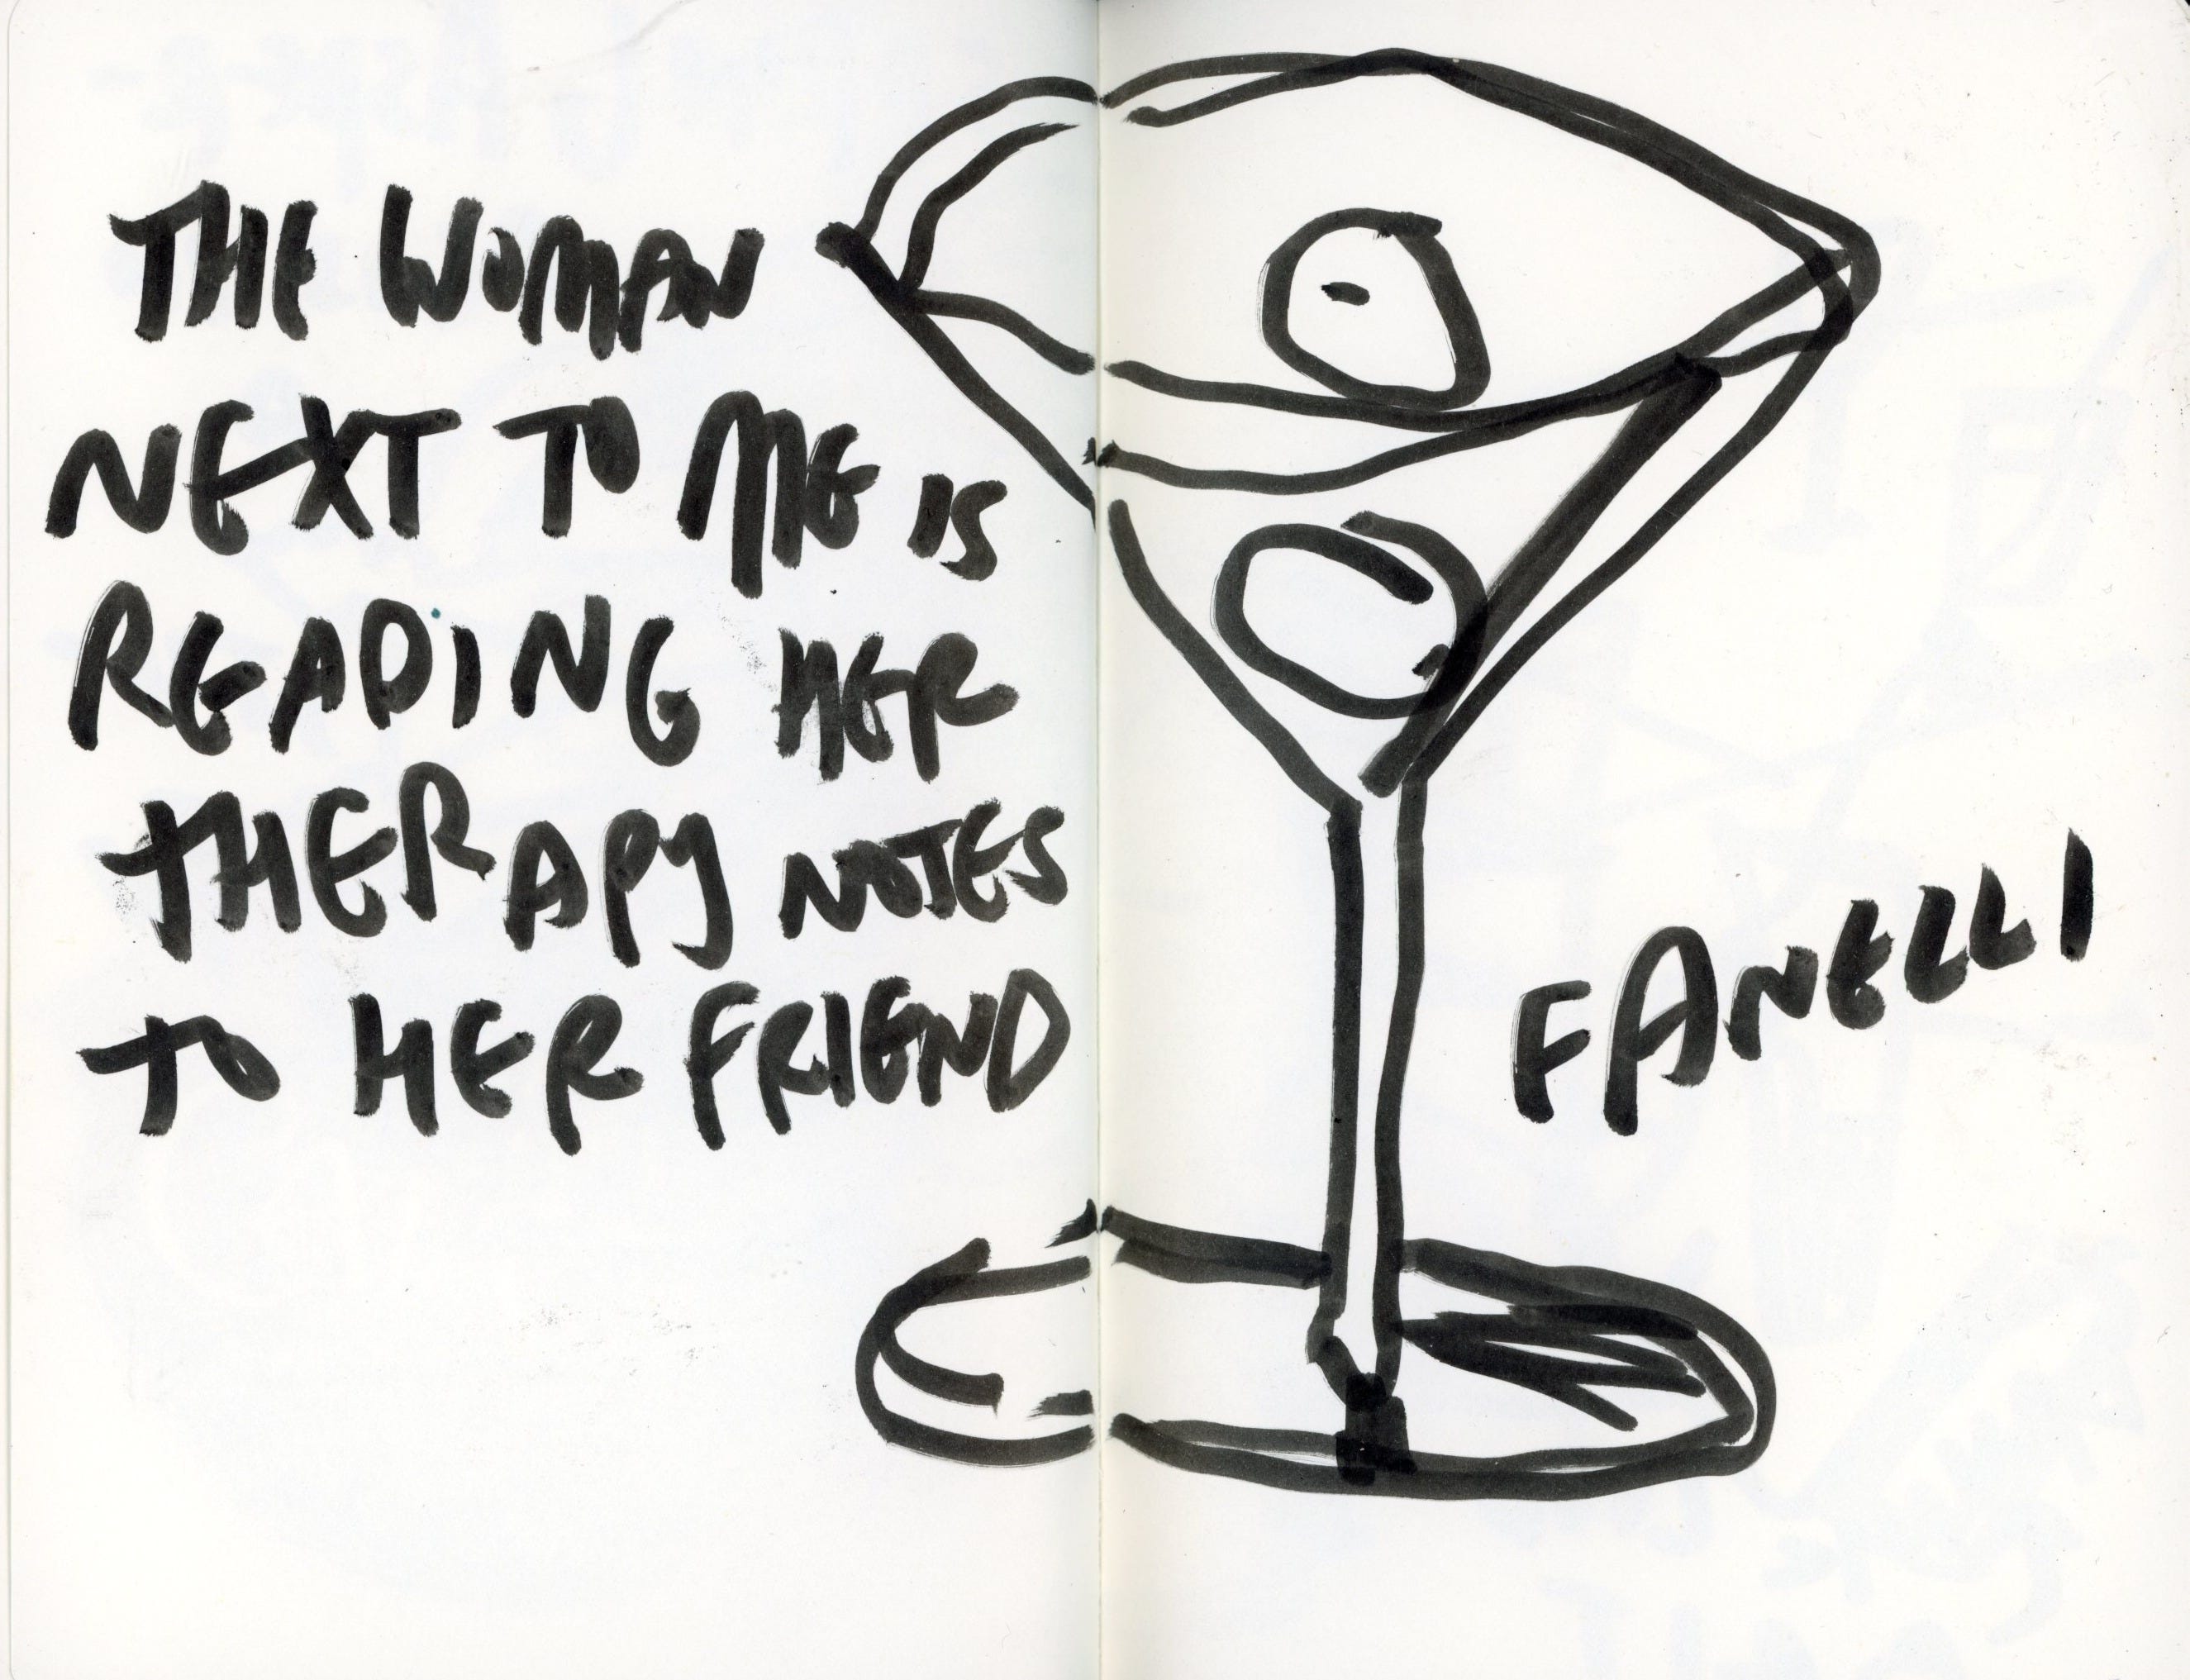 THE WOMAN
NEXT TO ME IS
READING HER
THERAPY NOTES
TO HER FRIEND
FANELLI